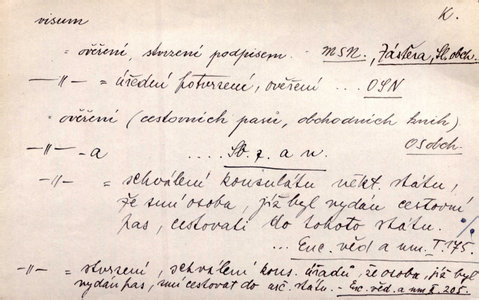 visum K.
= ověření, stvrzení podpisem. - MSN., Zástěra, Sl. obch.
—"— = úřední potvrzení, ověření ... OSN
= ověření (cestovních pasů, obchodních knih)
OSobch.
—"— -a .... Sb. z. a n.
—"— = schválení konsulátu někt. státu,
že smí osoba, jíž byl vydán cestovní
pas, cestovati do tohoto státu. %
... Enc. věd a um. I. 175.
—"— = stvrzení, schválení kons. úřadů, že osoba, jíž byl
vydán pas, smí cestovat do urč. státu. - Enc. věd. a um. II. 205.